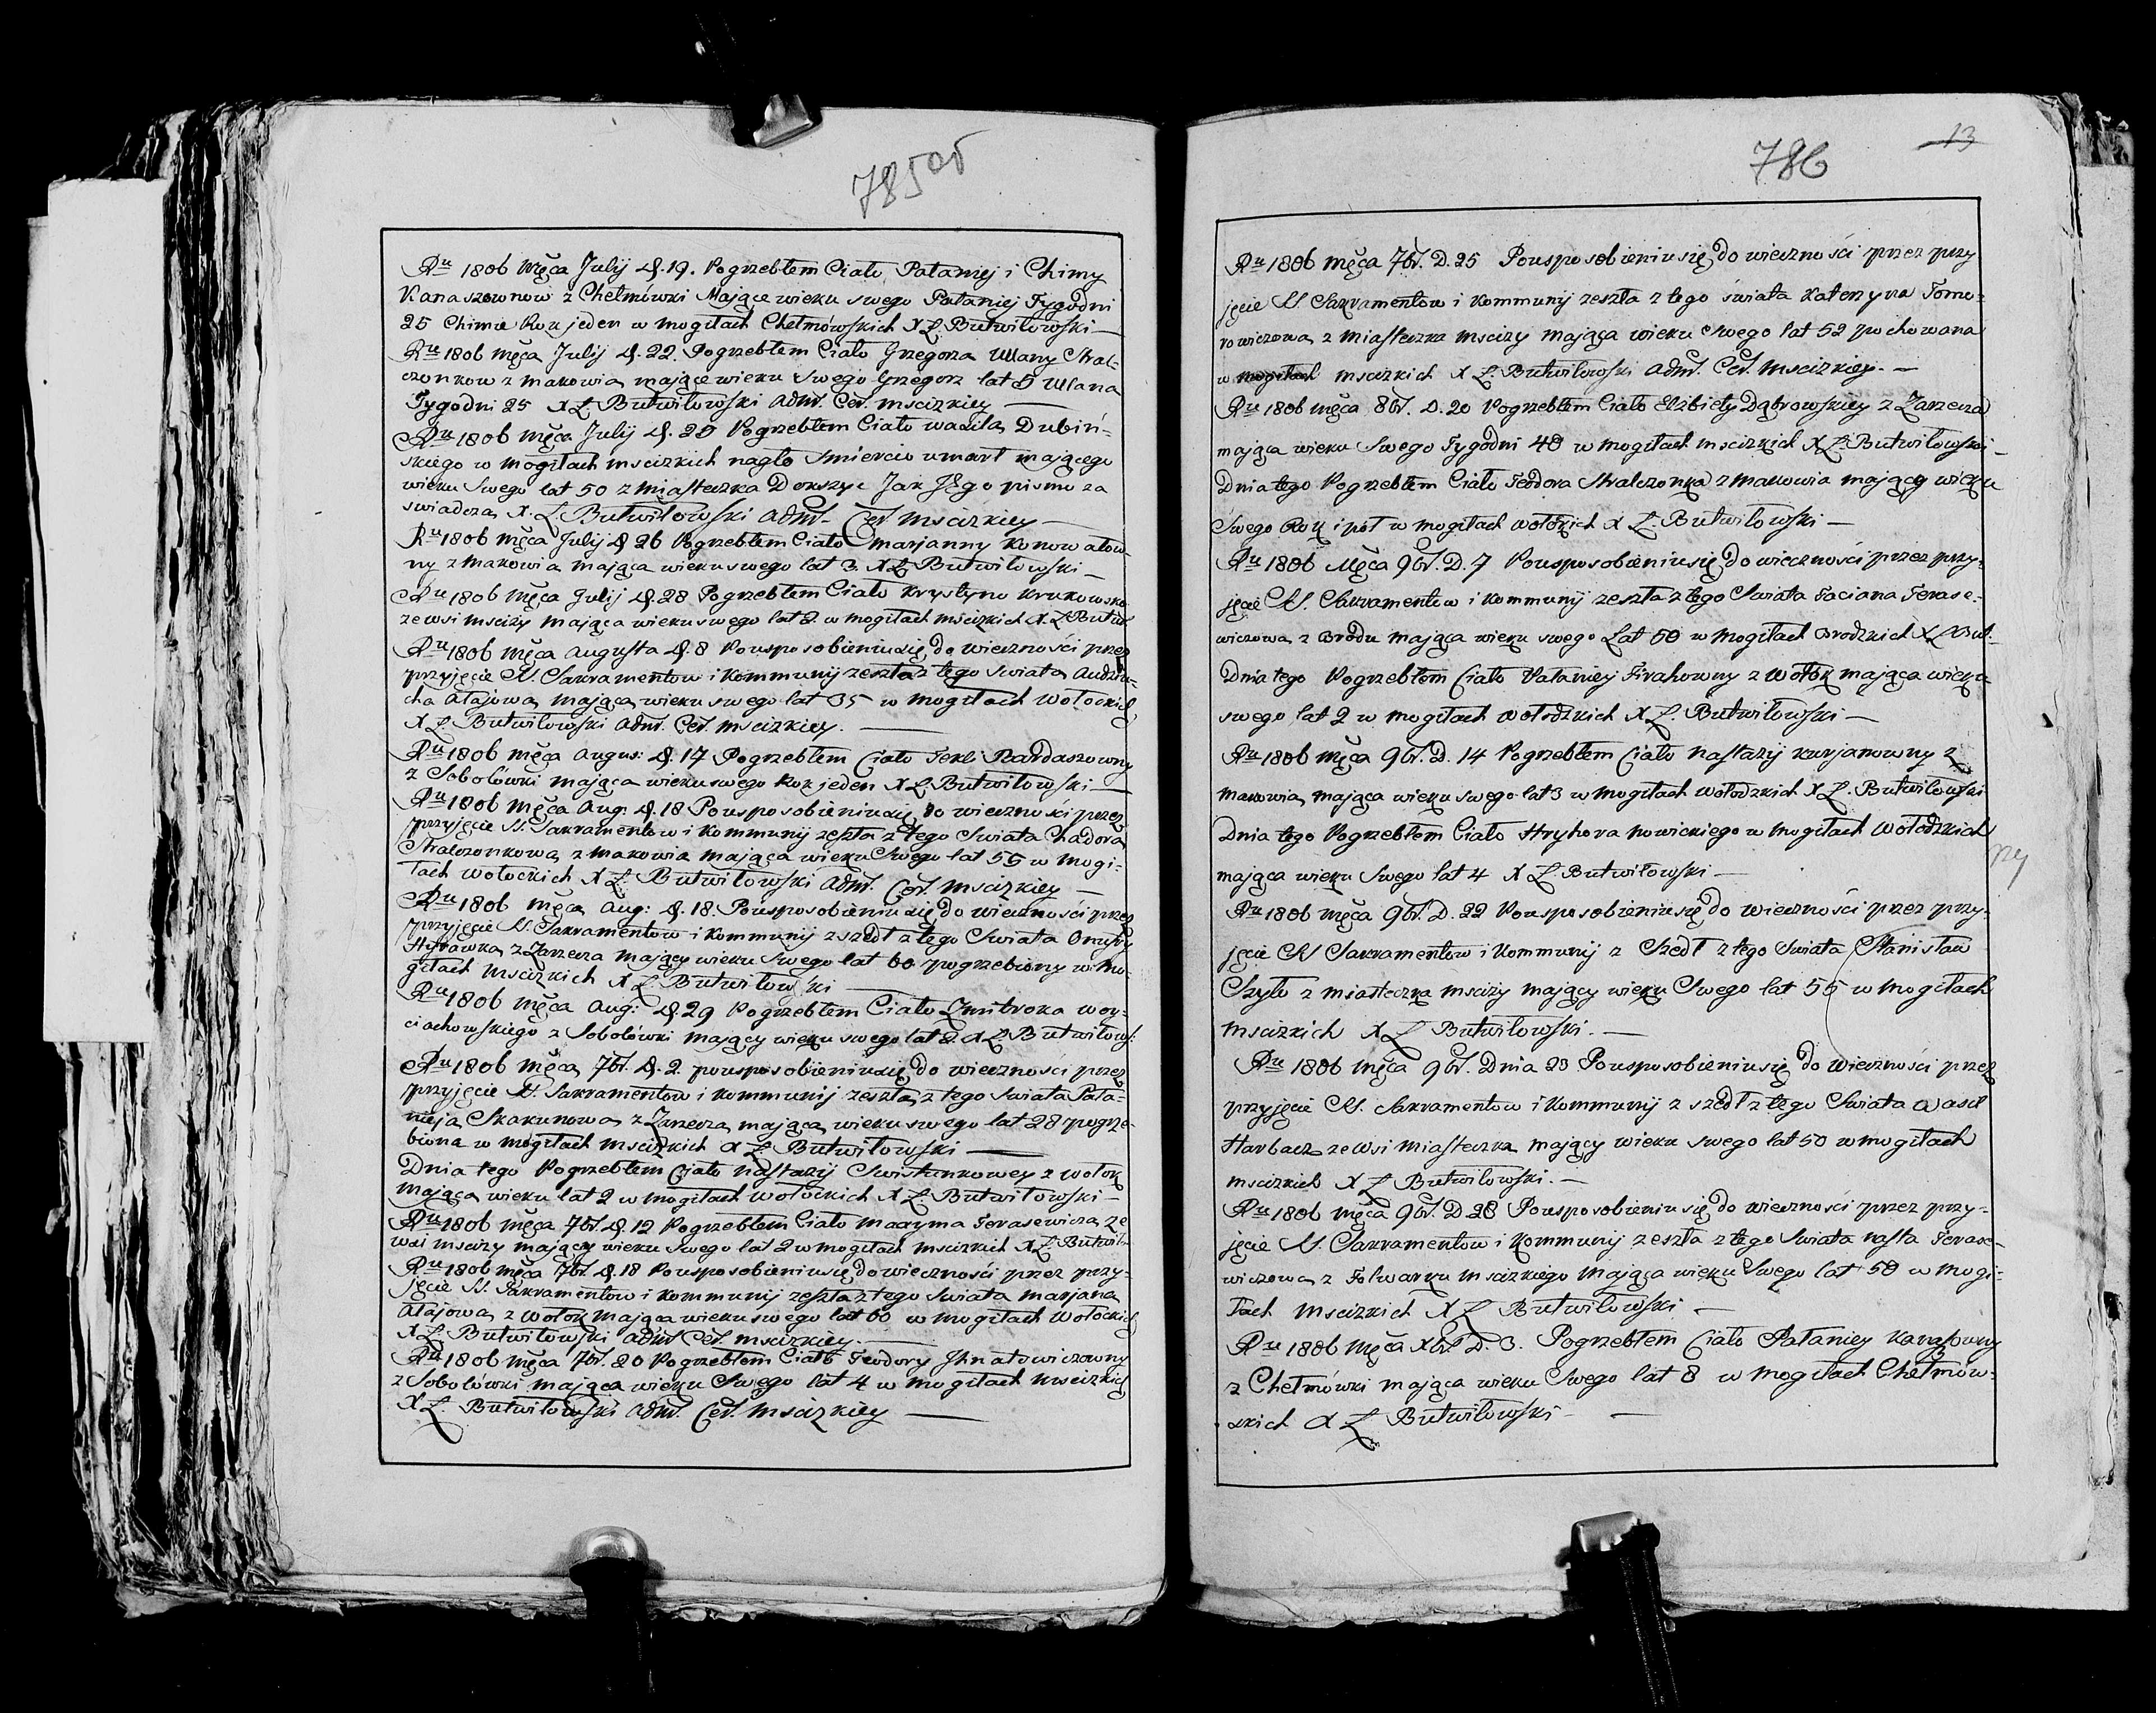 785об
Ru 1806 Męca Julij D. 19. Pogrzebłem Ciało Pałaniej i Chimy
Kanaszownow z Chełmówki Mające wieku swego Pałaniej Tygodni
25 Chimie Rok jeden w mogiłach Chełmówskich X L. Butwiłowski —
Ru 1806 męca Julij D. 22. Pogrzebłem Ciało Grzegorza Ullany Stral-
czonkow z makowia mające wieku Swego Grzegorz lat 5 Ullana
Tygodni 25 X L. Butwiłowski Adm. Cer. mscizkiey —
Ru 1806 męca July D. 20 Pogrzebłem Ciało wasila Dubiń-
skiego w mogiłach mscizkich nagło Smiercio umarł mającego
wieku Swego lat 50 z Miasteczka Dokszyc Jak Jego pismo za
swiadcza X. L. Butwiłowski Adm. Cer mscizkiey —
Ru 1806 męca Julij D 26 Pogrzebłem Ciało marjanny Konowałow-
ny z makowia mająca wieku swego lat 3. X L Butwiłowski —
Ru 1806 męca Julij D. 28 Pogrzebłem Ciało Krystyny Krukowsko
ze wsi mscizy mająca wieku swego lat 2. w mogiłach mscizkich X. L Butwił
Ru 1806 męca Augusta D. 8 Pousposobieniusię do wieczności przez
przyjęcie SS. Sakramentow i Kommunij zeszła z tego Swiata Audziu-
cha Atajowa mająca wieku swego lat 35 w mogiłach Wołockich
X L. Butwiłowski Adm. Cer. mscizkiey. —
Ru 1806 męca Augus: D. 17 Pogrzebłem Ciało Tekli Rardaszowny
z Sobolówki mająca wieku swego Rok jeden X L. Butwiłowski —
Ru 1806 męca Aug: D. 18 Pousposobieniusię do wieczności przez
przyjęcie SS. Sakramentow i Kommunij zeszła z tego Swiata Chadora
Stralczonkowa z makowia mająca wieku Swego lat 56 w mogi-
łach wołockich X L. Butwiłowski Adm. Cer. mscizkiey —
Ru 1806 męca Aug: D. 18. Pousposobieniusię do wieczności przez
przyjęcie SS. Sakramentow i Kommunij z szedł z tego Swiata Onufry
Hyrawka z Zarzecza mający wieku Swego lat 60 pogrzebiony w mo-
giłach mscizkich X L Butwiłowski —
Ru 1806 męca Aug: D. 29 Pogrzebłem Ciało Dmitroka woy-
ciachowskiego z Sobolówki mający wieku swego lat 2. X L. Butwiłows:
Ru 1806 męca 7br. D. 2. pousposobieniusię do wieczności przez
przyjęcie SS. Sakramentow i Kommunij zeszła z tego Swiata Pała-
nieja Skakunowa z Zarzecza mająca wieku swego lat 28 pogrze-
biona w mogiłach mscizkich X L Butwiłowski —
Dnia tego Pogrzebłem Ciało Nastazij Swistunkowey z wołok
mająca wieku lat 2 w mogiłach wołockich X L. Butwiłowski —
Ru 1806 męca 7br. D. 12 Pogrzebłem Ciało maxyma Terasewicza ze
wsi mscizy mający wieku Swego lat 2 w mogiłach mscizkich X L. Butwił-
Ru 1806 męca 7br. D. 18 Pousposobieniusię do wieczności przez przy-
jęcie SS. Sakramentow i Kommunij zeszła z tego Swiata marjana
Atajowa z wołok mająca wieku swego lat 60 w mogiłach Wołockich
X L. Butwiłowski Adm Cer. mscizkiey. —
Ru 1806 męca 7br. 20 Pogrzebłem Ciało Teodory Jhnatowiczowny
z Sobolówki mająca wieku Swego lat 4 w mogiłach mscizkich
X L. Butwiłowski Adm. Cer. mscizkiey —
786
13
Ru 1806 męca 7br. D. 25 Pousposobieniusię do wieczności przez przy
jęcie SS. Sakramentow i Kommunij zeszła z tego świata Katerzyna Tomo-
rowiczowa z Miasteczka mscizy mająca wieku Swego lat 52 pochowana
w mogiłach mscizkich X L. Butwiłowski Adm. Cer. mscizkiey. —
Ru 1806 męca 8br. D. 20 Pogrzebłem Ciało Elżbiety Dąbrowskiey z Zarzecza
mająca wieku Swego Tygodni 40 w mogiłach mscizkich X L. Butwiłowski —
Dnia tego Pogrzebłem Ciało Teodora Stralczonka z makowia mający wieku
Swego Rok i pół w mogiłach wołockich X L. Butwiłowski —
Ru 1806 Męca 9br. D. 7 Pousposobieniusię do wieczności przez przy-
jęcie SS. Sakramentow i Kommunij zeszła z tego Swiata Taciana Terase-
wiczowa z Brodu mająca wieku swego Lat 50 w mogiłach Brodzkich X L But.
Dnia tego Pogrzebłem Ciało Pałaniey Firahowny z Wołok mająca wieku
swego lat 2 w mogiłach wołodzkich X L. Butwiłowski —
Ru 1806 męca 9br. D. 14 Pogrzebłem Ciało nastazij kurjanowny z
makowia mająca wieku swego lat 3 w mogiłach wołodzkich X L. Butwiłowski
Dnia tego Pogrzebłem Ciało Hryhora nowickiego w mogiłach Wołodzkich
ny
mająca wieku Swego lat 4 X L Butwiłowski —
Ru 1806 męca 9br. D. 22 Pousposobieniusię do wieczności przez przy-
jęcie SS Sakramentow i Kommunij z Szedł z tego Swiata Stanisław
Szyło z miasteczka mscizy mający wieku Swego lat 55 w mogiłach
mscizkich X L Butwiłowski. —
Ru 1806 męca 9br. Dnia 23 Pousposobieniusię do wieczności przez
przyjęcie SS. Sakramentow i Kommunij z szedł z tego Swiata Wasil
Harbacz ze wsi miasteczka mający wieku swego lat 50 w mogiłach
mscizkich X L Butwiłowski. —
Ru 1806 męca 9br. D 28 Pousposobieniusię do wieczności przez przy-
jęcie SS. Sakramentow i Kommunij zeszła z tego Swiata nasta Terase-
wiczowa z Folwarku mscizkiego mająca wieku Swego lat 50 w mogi-
łach mscizkich X L Butwiłowski —
Ru 1806 męca Xbr D. 3. Pogrzebłem Ciało Pałaniey Kanaszowny
z Chełmówki mająca wieku Swego lat 8 w mogiłach Chełmów-
skich X L Butwiłowski — —